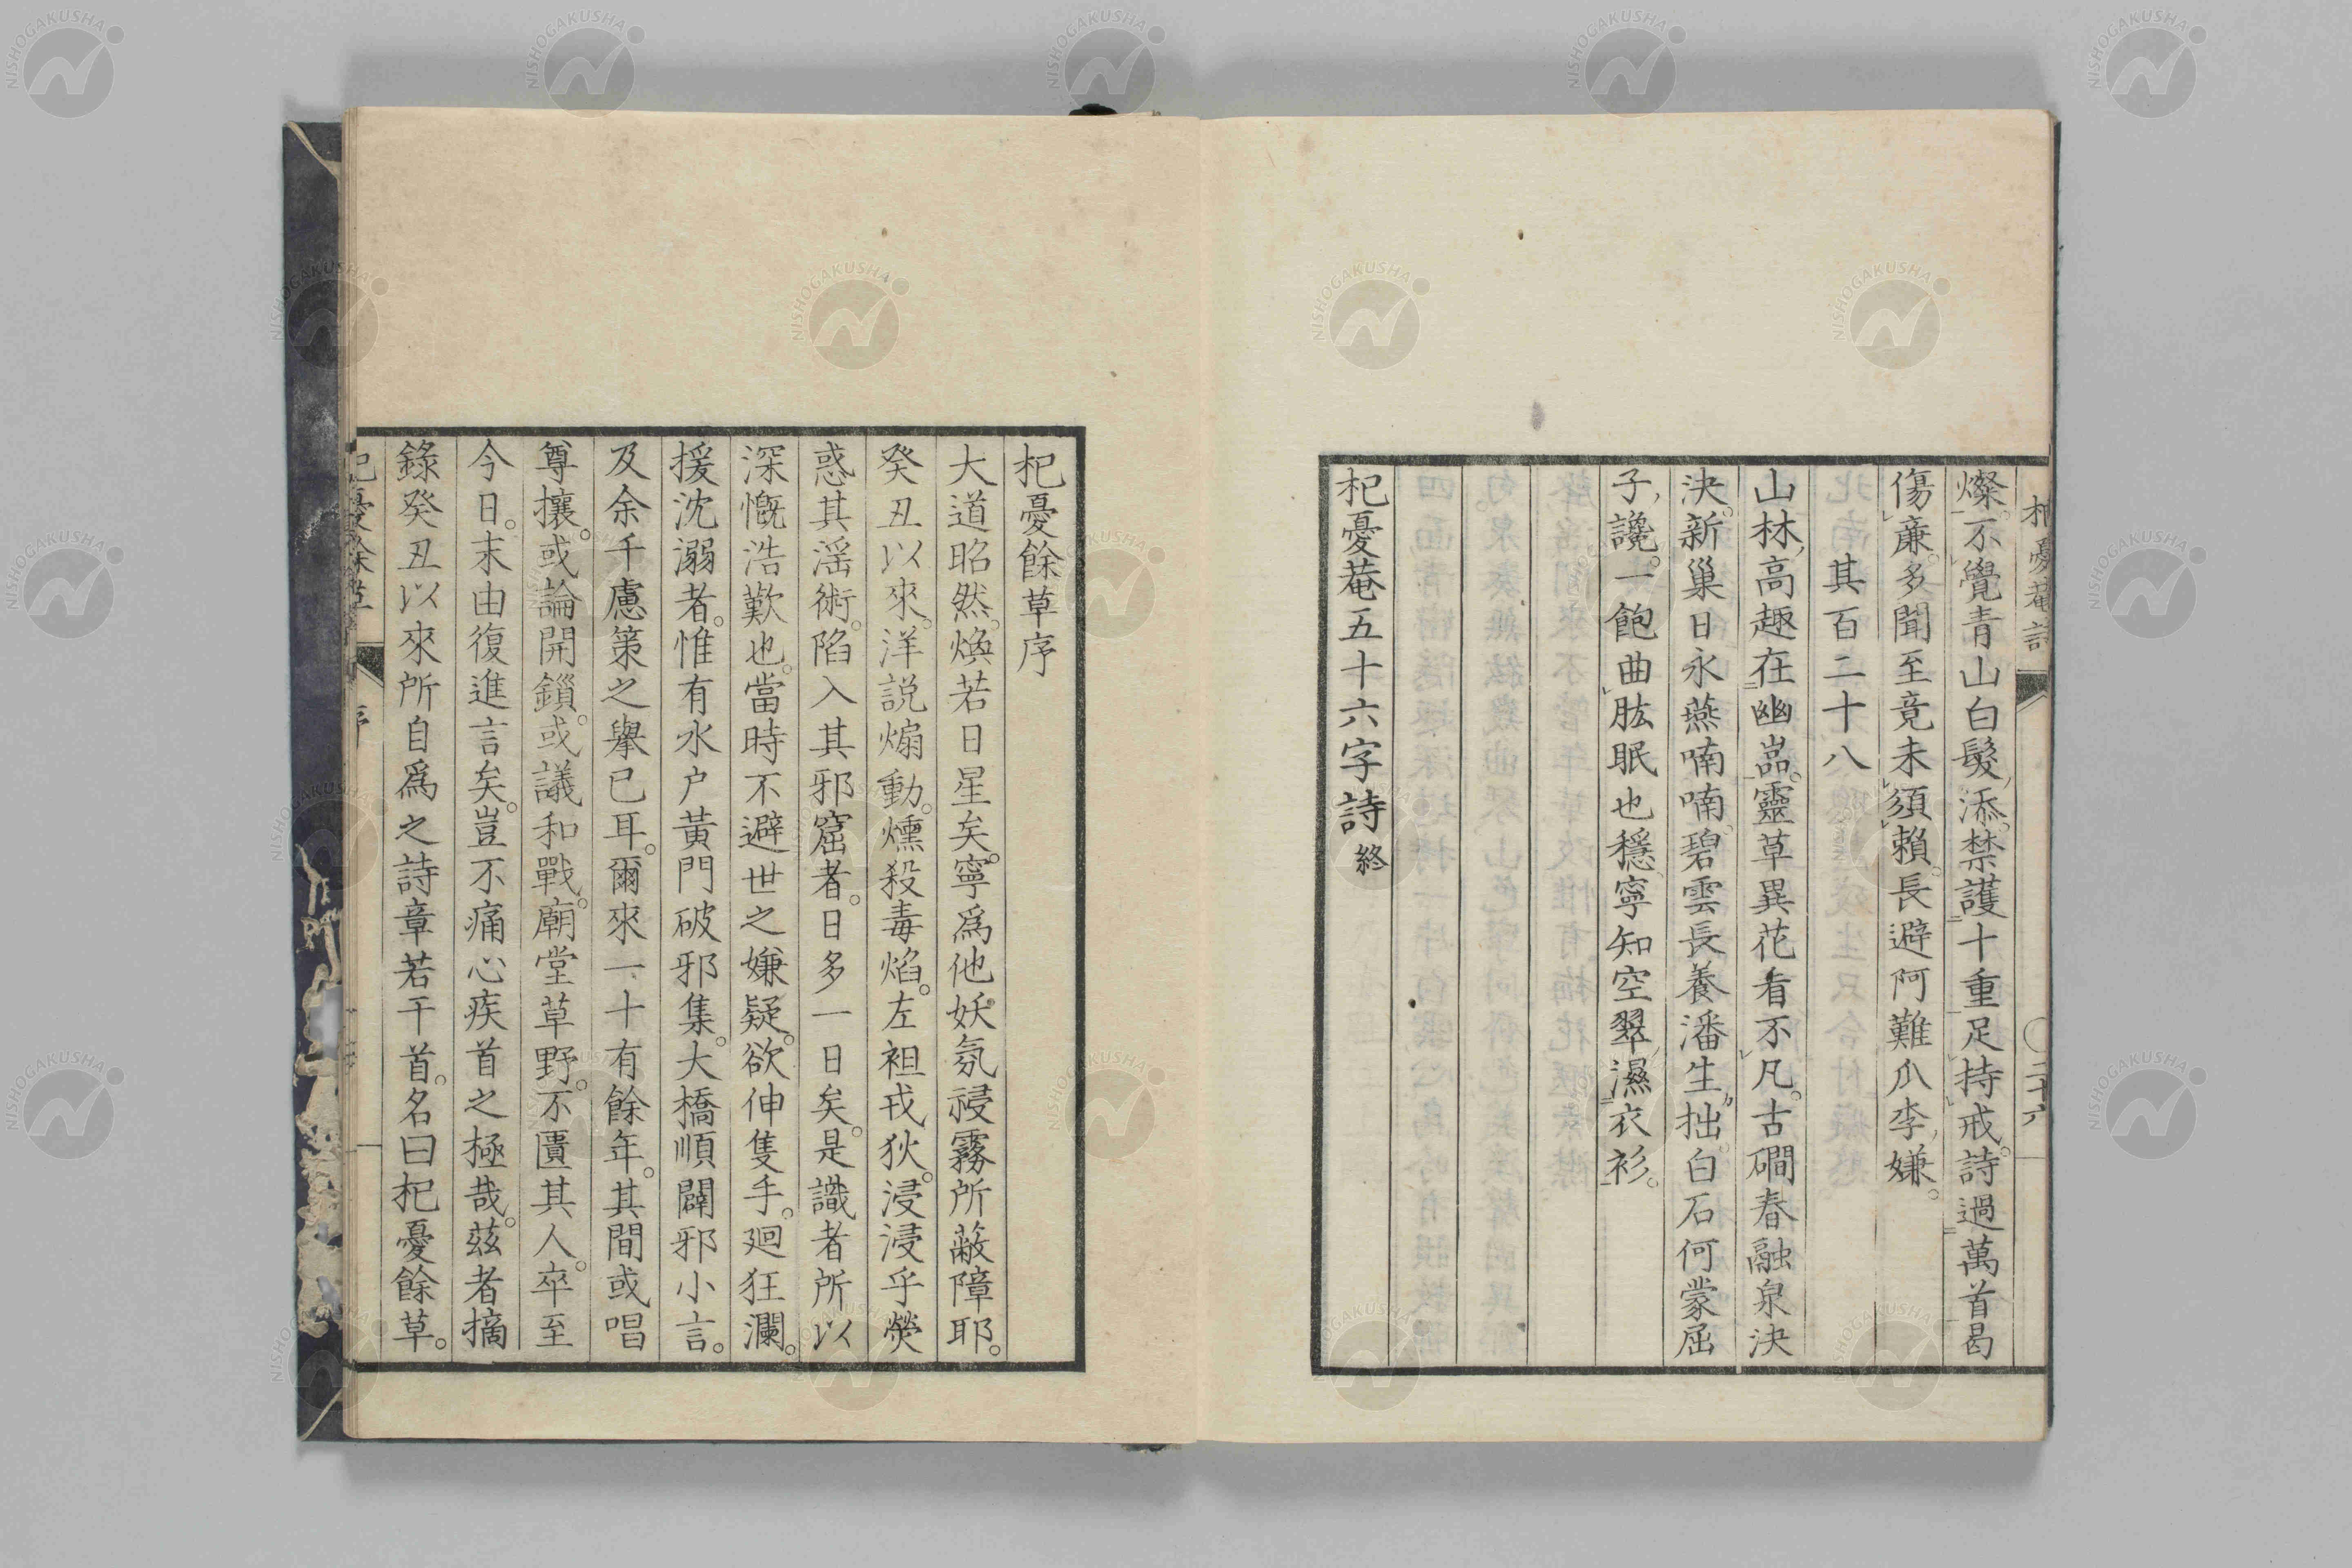 杞憂菴詩
二十六
燦。不覺青山白髮添。禁護十重足持戒。詩過萬首曷
傷廉。多聞至竟未須賴。長避阿難爪李嫌。
其百二十八
山林高趣在幽嵓。靈草異花看不凡。古磵春融泉決
決。新巢日永燕喃喃。碧雲長養潘生拙。白石何蒙屈
子讒。一飽曲肱眠也穩。寧知空翠濕衣衫。
杞憂菴五十六字詩終
杞憂餘草序
大道昭然。煥若日星矣。寧爲他妖氛祲霧所蔽障耶。
癸丑以來。洋説煽動。燻殺毒焰。左袒戎狄。浸浸乎熒
惑其淫術。陷入其邪窟者。日多一日矣。是識者所以
深慨浩歎也。當時不避世之嫌疑。欲伸隻手。廻狂瀾。
援沈溺者。惟有水户黃門破邪集。大橋順闢邪小言。
及余千慮策之擧已耳。爾來一十有餘年。其間或唱
尊攘。或論開鎖。或議和戰。廟堂草野。不匱其人。卒至
今日。末由復進言矣。豈不痛心疾首之極哉。茲者摘
錄癸丑以來所自爲之詩章若干首。名曰杞憂餘草。
杞憂餘草
序
NISHOGAKUSHA